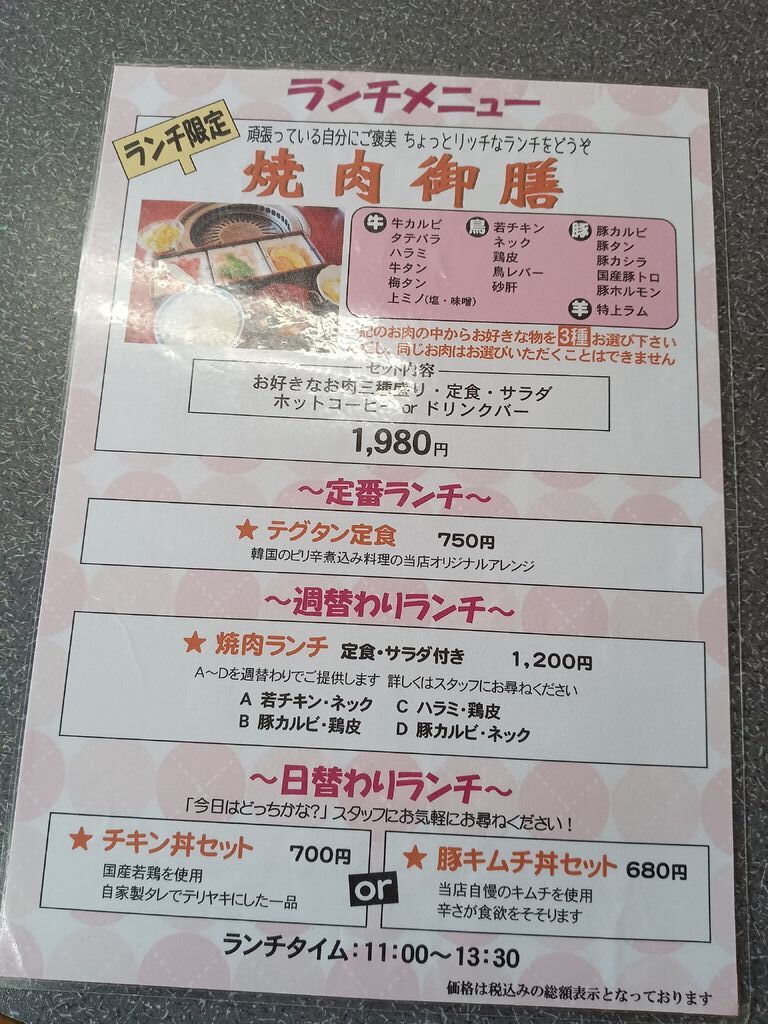 ランチメニュー
ランチ限定
頑張っている自分にご褒美 ちょっとリッチなランチをどうぞ
焼肉御膳
牛 牛カルビ
タテバラ
ハラミ
牛タン
梅タン
上ミノ(塩・味噌)
鳥 若チキン
ネック
鶏皮
鳥レバー
砂肝
豚 豚カルビ
豚タン
豚カシラ
国産豚トロ
豚ホルモン
羊 特上ラム
記のお肉の中からお好きな物を3種お選び下さい
だし、同じお肉はお選びいただくことはできません
セット内容
お好きなお肉三種盛り・定食・サラダ
ホットコーヒー or ドリンクバー
1,980円
～定番ランチ～
★ テグタン定食 750円
韓国のピリ辛煮込み料理の当店オリジナルアレンジ
～週替わりランチ～
★ 焼肉ランチ 定食・サラダ付き 1,200円
A～Dを週替わりでご提供します 詳しくはスタッフにお尋ねください
A 若チキン・ネック C ハラミ・鶏皮
B 豚カルビ・鶏皮 D 豚カルビ・ネック
～日替わりランチ～
「今日はどっちかな?」スタッフにお気軽にお尋ねください!
★ チキン丼セット 700円
国産若鶏を使用
自家製タレでテリヤキにした一品
or
★ 豚キムチ丼セット 680円
当店自慢のキムチを使用
辛さが食欲をそそります
ランチタイム:11:00～13:30
価格は税込みの総額表示となっております